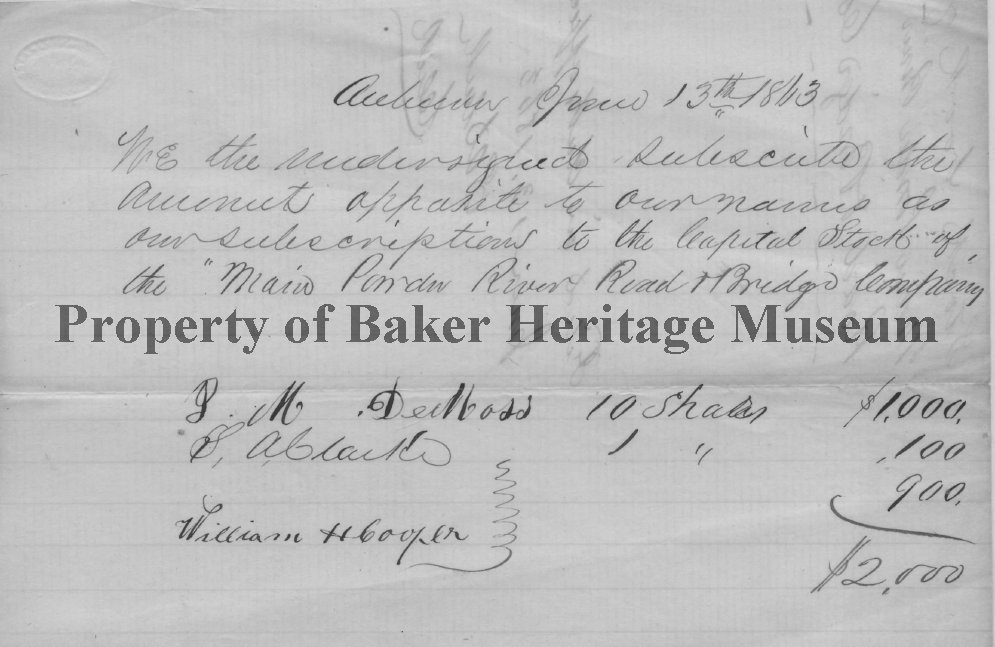 Auburn June 13th 1863
WE the undersigned subscribe the
amount opposite to our names as
our subscriptions to the Capital Stock of
the "Main Powder River Road & Bridge Company
Property of Baker Heritage Museum
P. M DeMoss 10 Shares $1,000.
S, A Clarke 1 " ,100
900.
William H Cooper
$2,000